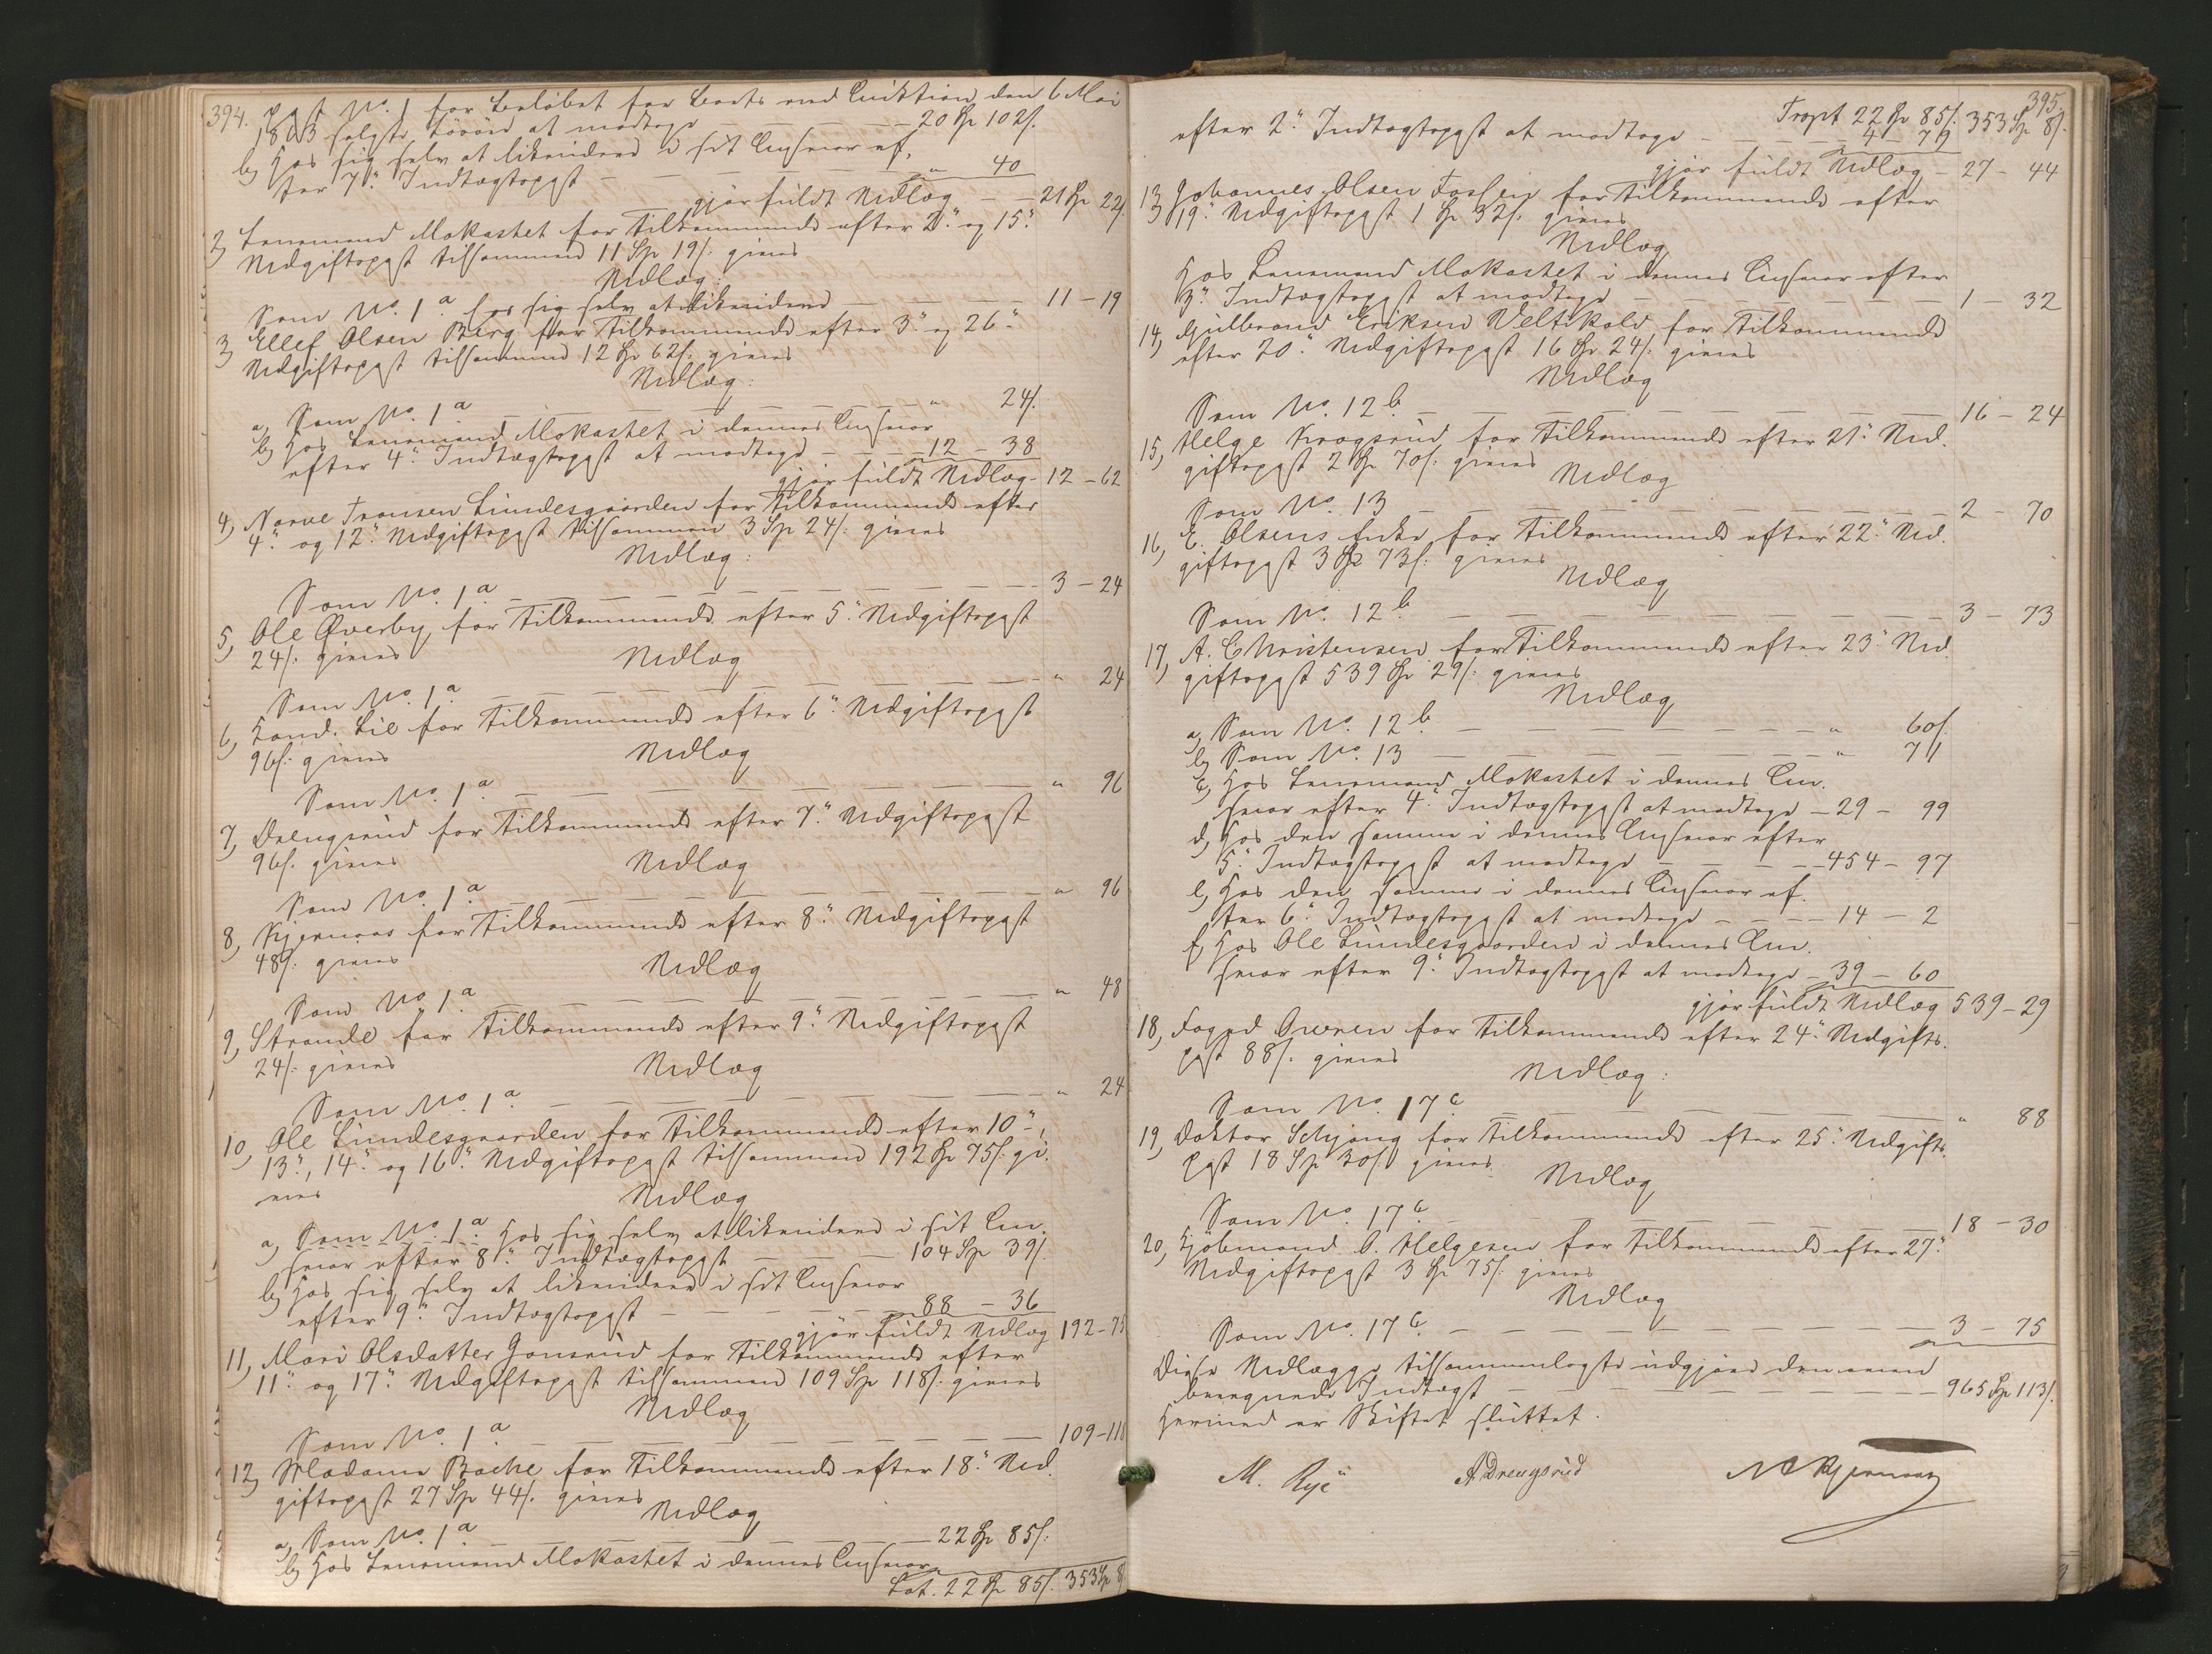 394.
post No. 1 for Beløbet for Boets ved Auktion den 6 Mai
1863 solgte Løsøre at modtage — — — — 20 Sp 102 s.
b, Hos sig selv at likvidere i sit Ansvar ef-
ter 7de Indtægtspost — — — — — " 40
gjør fuldt Udlæg — — 21 Sp 22 s.
2, Lensmand Mokastet for Tilkommende efter 2den og 15de
Udgiftspost tilsammen 11 Sp 19 s: gives
Udlæg:
Som No. 1 a hos sig selv at likvidere — — — — 11 – 19
3, Ellef Olsen Berg for Tilkommende efter 3die og 26de
Udgiftspost tilsammen 12 Sp 62 s: gives
Udlæg:
a, Som No. 1 a — — — — — — — " 24 s.
b, Hos Lensmand Mokastet i dennes Ansvar
efter 4de Indtægtspost at modtage — — — 12 – 38
gjør fuldt Udlæg – 12 – 62
4, Narve Transen Lundesgaarden for Tilkommende efter
4de og 12te Udgiftspost tilsammen 3 Sp 24 s: gives
Udlæg:
Som No. 1 a — — — — — — — — — 3 – 24
5, Ole Øverby for Tilkommende efter 5te Udgiftspost
24 s. gives
Udlæg
Som No. 1 a — — — — — — — — — " 24
6, Kand. Lie for Tilkommende efter 6te Udgiftspost
96 s. gives
Udlæg
Som No. 1 a — — — — — — — — — " 96
7, Drengsrud for Tilkommende efter 7de Udgiftspost
96 s. gives
Udlæg
Som No. 1 a — — — — — — — — — " 96
8, Kjernaas for Tilkommende efter 8de Udgiftspost
48 s. gives
Udlæg
Som No. 1 a — — — — — — — — — " 48
9, Strande for Tilkommende efter 9de Udgiftspost
24 s. gives
Udlæg
Som No. 1 a — — — — — — — — — " 24
10, Ole Lundesgaarden for Tilkommende efter 10de,
13de, 14de og 16de Udgiftspost tilsammen 192 Sp 75 s. gi-
ves
Udlæg
a, Som No. 1 a hos sig selv at likvidere i sit An-
svar efter 8de Indtægtspost — — — 104 Sp 39 s.
b, Hos sig selv at likvidere i sit Ansvar
efter 9de Indtægtspost — — — — — 88 – 36
gjør fuldt Udlæg 192 – 75
11, Mari Olsdatter Gonsrud for Tilkommende efter
11te og 17de Udgiftspost tilsammen 109 Sp 118 s. gives
Udlæg
Som No. 1 a — — — — — — — — — 109 – 118
12, Madame Bache for Tilkommende efter 18de Ud-
giftspost 27 Sp 44 s. gives
Udlæg
a, Som No. 1 a — — — — — — — 22 Sp 85 s.
b, Hos Lensmand Mokastet i dennes Ansvar
Lat. 22 Sp 85 s. 353 Sp 8 s.
395.
Trspt 22 Sp 85 s. 353 Sp 8 s.
efter 2den Indtægtspost at modtage — — — — 4 – 79
gjør fuldt Udlæg – 27 – 44
13, Johannes Olsen Fossen for Tilkommende efter
19de Udgiftspost 1 Sp 32 s. gives
Udlæg
Hos Lensmand Mokastet i dennes Ansvar efter
3die Indtægtspost at modtage — — — — — — 1 – 32
14, Gulbrand Eriksen Veltikold for Tilkommende
efter 20de Udgiftspost 16 Sp 24 s: gives
Udlæg
Som No. 12 b. — — — — — — — — — 16 – 24
15, Helge Krogsrud for Tilkommende efter 21de Ud-
giftspost 2 Sp 70 s. gives
Udlæg
Som No. 13 — — — — — — — — — 2 – 70
16, E. Olsens Enke for Tilkommende efter 22de Ud-
giftspost 3 Sp 73 s. gives
Udlæg
Som No. 12 b — — — — — — — — — 3 – 73
17, A. Christensen for Tilkommende efter 23de Ud-
giftspost 539 Sp 29 s. gives
Udlæg
a, Som No. 12 b — — — — — — — " 60 s.
b, Som No. 13 — — — — — — — " 71
c, Hos Lensmand Mokastet i dennes An-
svar efter 4de Indtægtspost at modtage — 29 – 99
d, Hos den samme i dennes Ansvar efter
5te Indtægtspost at modtage — — — — 454 – 97
e, Hos den samme i dennes Ansvar ef-
ter 6te Indtægtspost at modtage — — — 14 – 2
f, Hos Ole Lundesgaarden i dennes An-
svar efter 9de Indtægtspost at modtage — 39 – 60
gjør fuldt Udlæg 539 – 29
18, Foged for Tilkommende efter 24de Udgifts-
post 88 s. gives
Udlæg:
Som No. 17 c. — — — — — — — — " 88
19, Doktor Schjong for Tilkommende efter 25de Udgifts-
post 18 Sp 30 s. gives
Udlæg
Som No. 17 c. — — — — — — — — 18 – 30
20, Kjøbmand O. Helgesen for Tilkommende efter 27de
Udgiftspost 3 Sp 75 s. gives
Udlæg
Som No. 17 c. — — — — — — — — 3 – 75
Disse Udlægge tilsammenlagte udgjøre den oven
beregnede Indtægt — — — — — — — — 965 Sp 113 s.
Hermed er Skiftet sluttet.
M. Rye A. Drengsrud N Kjernaas